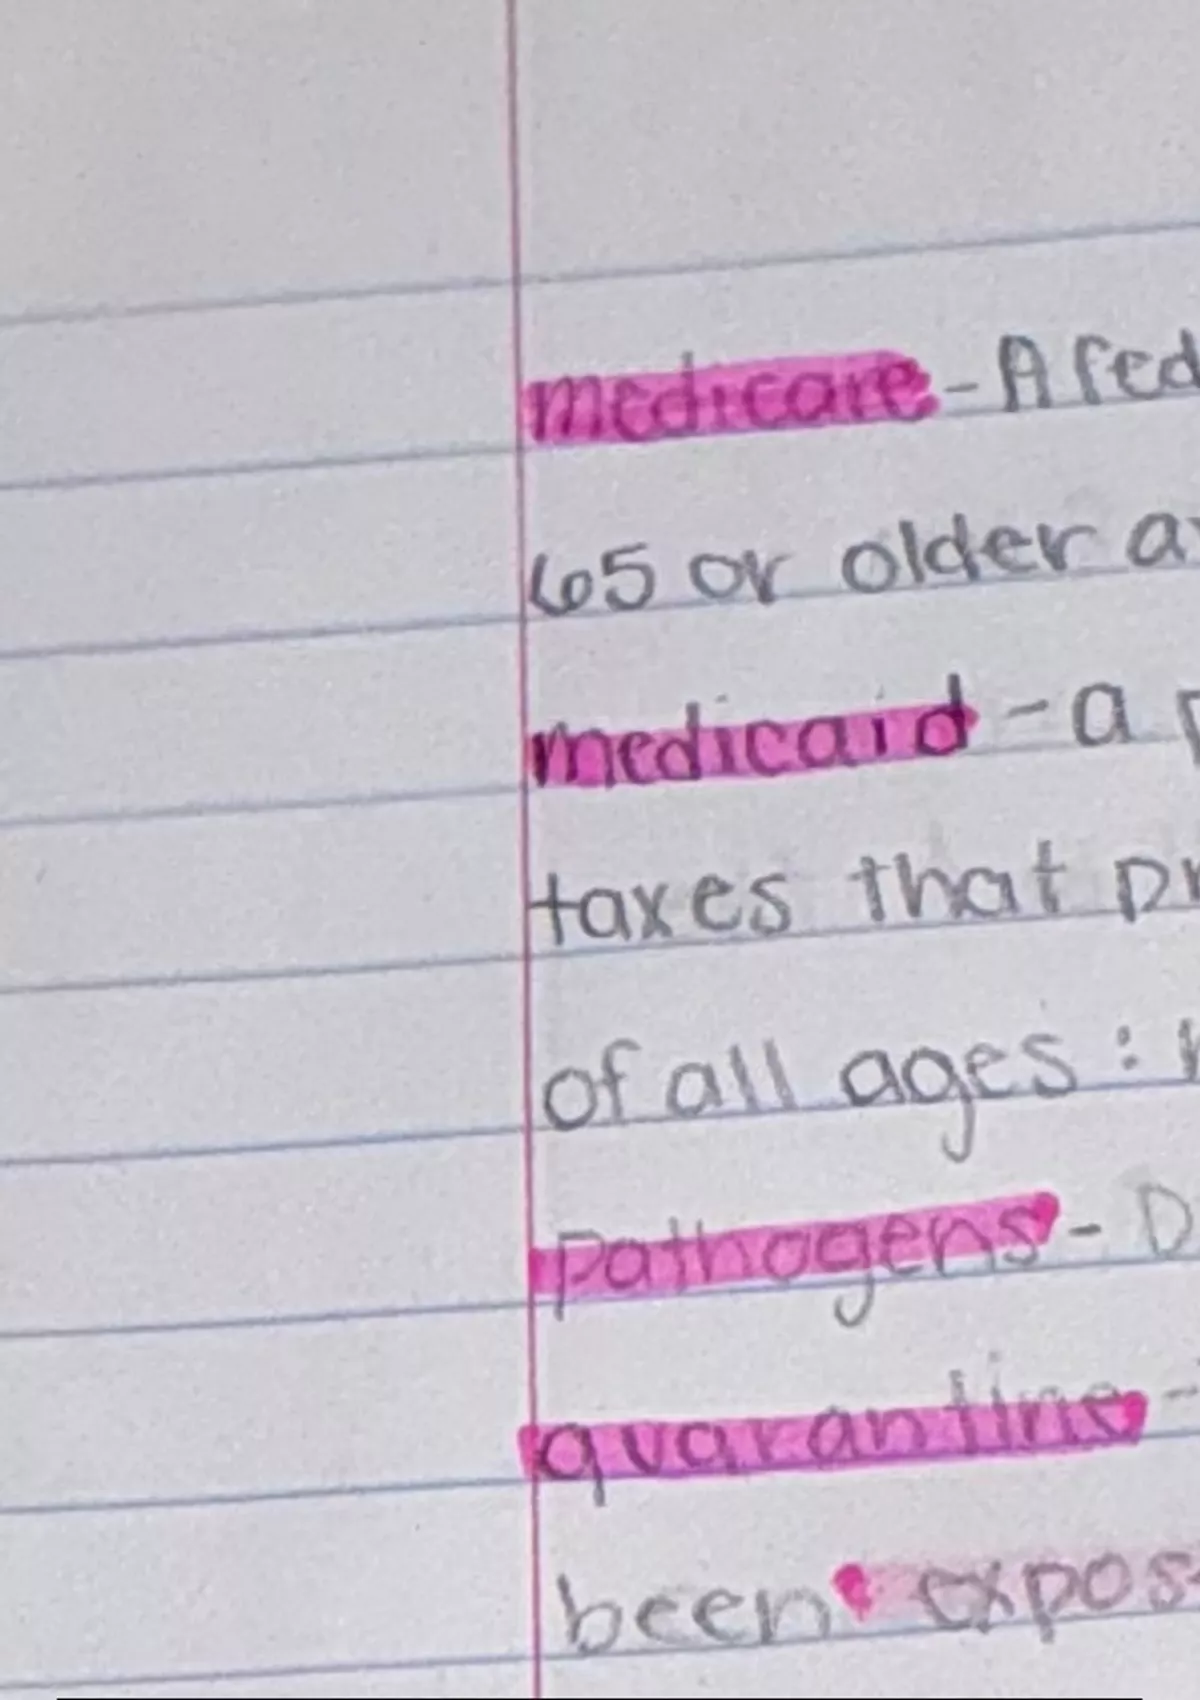 medicare - A fed
65 or older a
medicaid - a
taxes that pr
of all ages :
pathogens - D
quarantine -
been expos